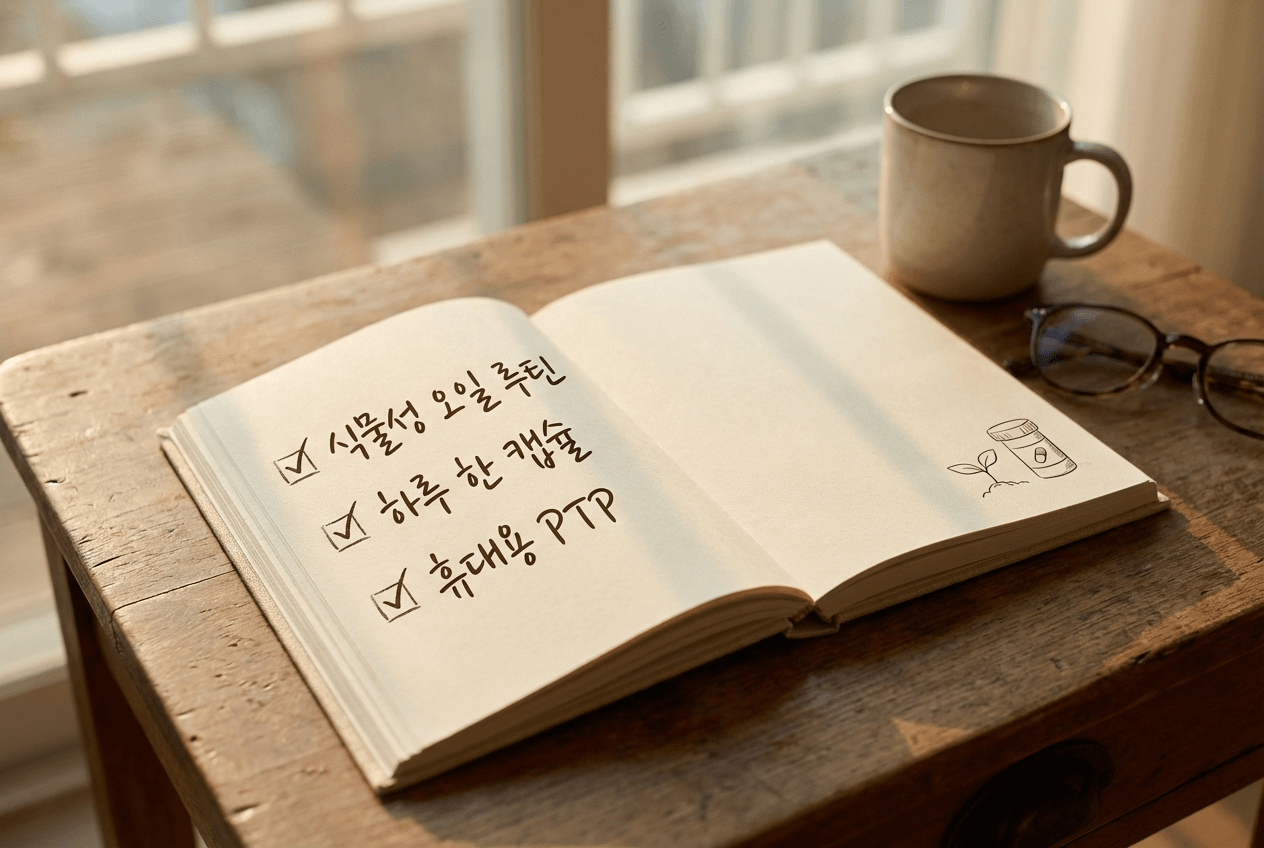 식물성 오일 루틴
하루 한 캡슐
휴대용 PTP